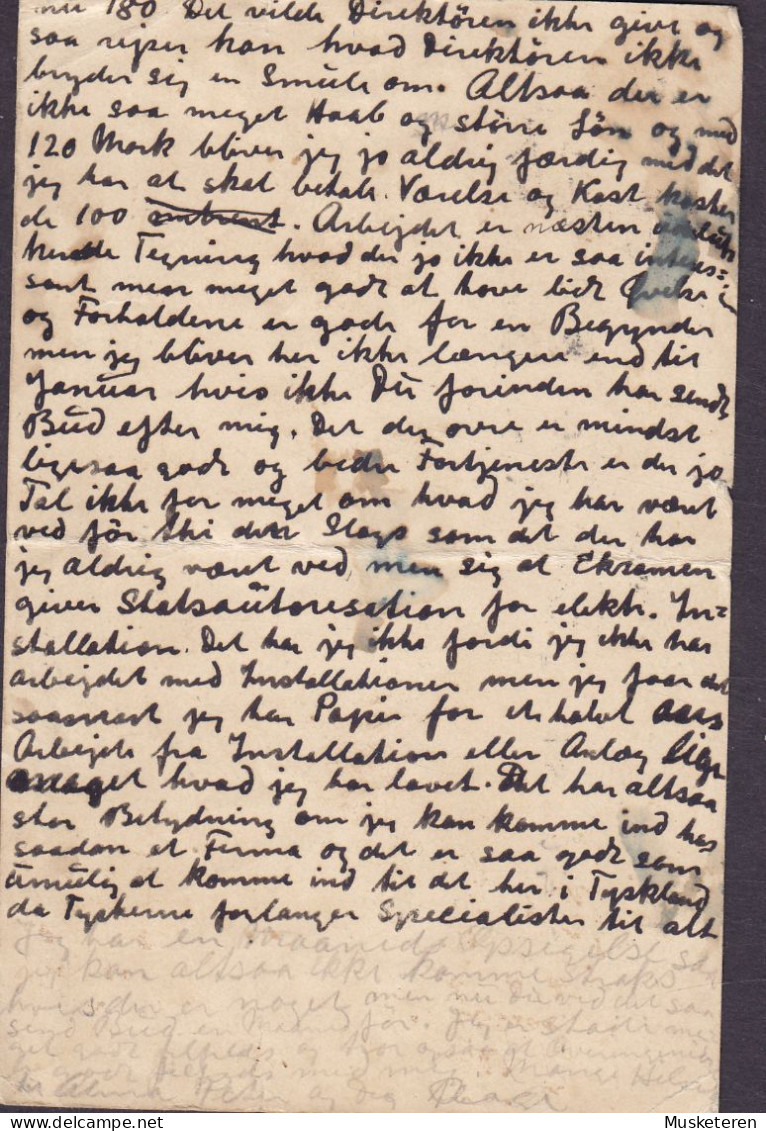 nu 180 Det vilde Direktören ikke give og
saa rejser han hvad Direktören ikke
bryder sig en Smule om. Altsaa der er
ikke saa meget Haab og större Lön og med
120 Mark bliver jeg jo aldrig færdig med det
jeg har at skal betale. Værelse og Kost koster
de 100. Arbejdet er næsten udeluk
kende Tegning hvad der jo ikke er saa interes=
sant men meget godt at have lidt Övelse i
og Forholdene er gode for en Begynder
men jeg bliver her ikke længere end til
Januar hvis ikke Du forinden har sendt
Bud efter mig. Det der ovre er mindst
ligesaa godt og bedre Fortjeneste er der jo
Tal ikke for meget om hvad jeg har været
ved för thi den Slags som det der har
jeg aldrig været ved, men sig at Eksamen
giver Statsautorisation for elektr. In=
stallation. Det har jeg ikke fordi jeg ikke har
arbejdet med Installationer men jeg faar det
saasnart jeg har Papir for et halvt Aars
Arbejde fra Installation eller Anlæg lige
meget hvad jeg har lavet. Det har altsaa
stor Betydning om jeg kan komme ind hos
saadan et Firma og det er saa godt som
umulig at komme ind til det her i Tyskland
da Tyskerne forlanger Specialister til alt
Jeg har en Maaneds Opsigelse saa
jeg kan altsaa ikke komme straks
hvis der er noget men nu Du ved det saa
send Bud en Maaned för. Jeg er stadig me
get godt tilfreds og
godt tilfreds med mig. Mange Hilsner
til Alma Peter og Dig
Musketeren